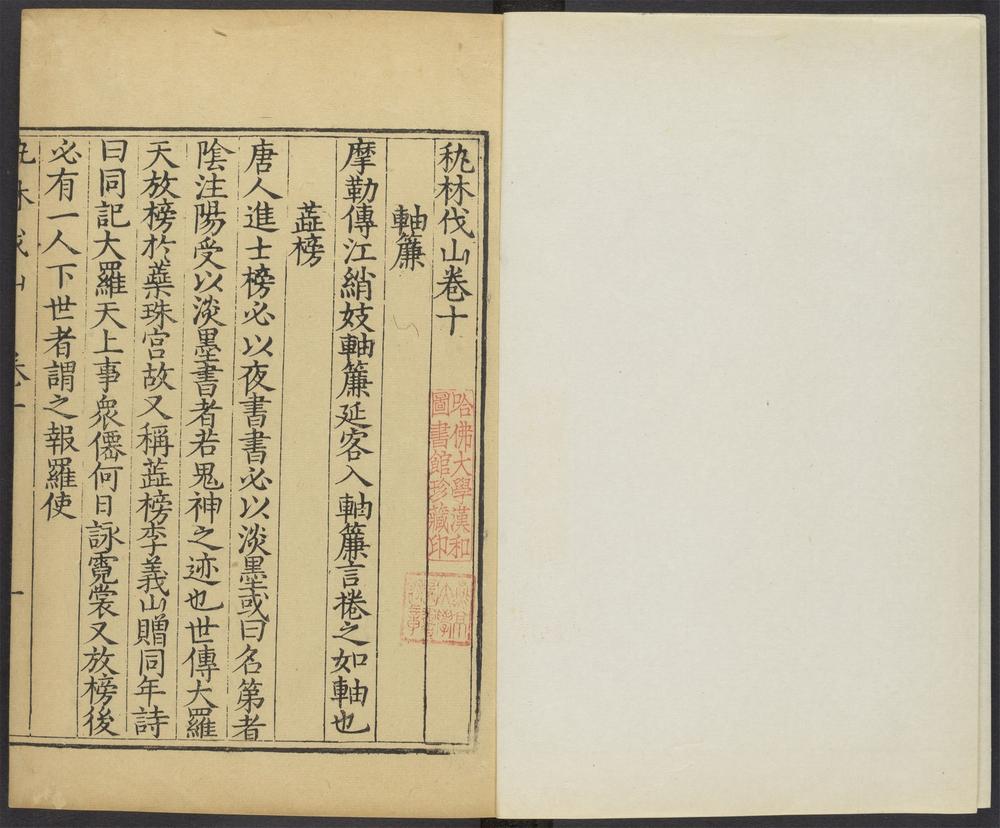 秇林伐山卷十
軸簾
摩勒傳江綃妓軸簾延客入軸簾言捲之如軸也
蕋榜
唐人進士榜必以夜書書必以淡墨或曰名第者
陰注陽受以淡墨書者若鬼神之迹也世傳大羅
天放榜於蘂珠宮故又稱蕋榜李義山贈同年詩
曰同記大羅天上事衆僊何日詠霓裳又放榜後
必有一人下世者謂之報羅使
哈佛大學漢和
圖書館珍藏印